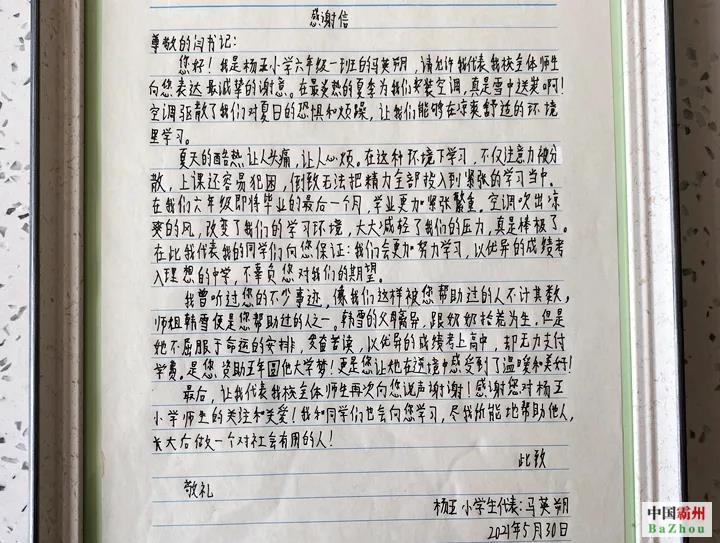 感谢信
尊敬的闫书记:
您好!我是杨王小学六年级一班的马英朔,请允许我代表我校全体师生
向您表达最诚挚的谢意。在最炎热的夏季为我们安装空调,真是雪中送炭啊!
空调驱散了我们对夏日的恐惧和烦躁,让我们能够在凉爽舒适的环境
里学习。
夏天的酷热让人头痛,让人心烦。在这种环境下学习,不仅注意力被分
散,上课还容易犯困,倒致无法把精力全部投入到紧张的学习当中。
在我们六年级即将毕业的最后一个月,学业更加紧张繁重。空调吹出凉
爽的风,改变了我们的学习环境,大大减轻了我们的压力,真是棒极了。
在此我代表我的同学们向您保证:我们会更加努力学习,以优异的成绩考
入理想的中学,不辜负您对我们的期望。
我曾听过您的不少事迹,像我们这样被您帮助过的人不计其数,
师姐韩雪便是您帮助过的人之一。韩雪的父母离异,跟奶奶捡荒为生,但是
她不屈服于命运的安排,发奋苦读,以优异的成绩考上高中,却无力支付
学费。是您资助五年圆他大学梦!更是您让她在逆境中感受到了温暖和美好!
最后,让我代表我校全体师生再次向您说声谢谢!感谢您对杨王
小学师生的关注和关爱!我和同学们也会向您学习,尽我所能地帮助他人,
长大后做一个对社会有用的人!
此致
敬礼
杨王小学生代表:马英朔
2021年5月30日
中国霸州
BaZhou